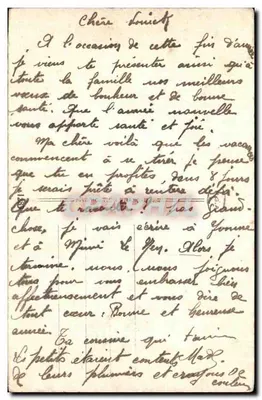 Chère
A l'occasion de cette fin d'année
je viens te présenter ainsi qu'à
toute la famille nos meilleurs
vœux de bonheur et de bonne
santé. Que l'année nouvelle
vous apporte santé et joie.
Ma chère voilà que les vacances
commencent à se tirer je pense
que tu en profites, dans 8 jours
je serais prête à rentrer déjà.
Que te Grand
chose, je vais écrire à Yvonne
et à Mimi Alors je
termine. nous, nous joignons
tous pour vous embrasser bien
affectueusement et vous dire de
tout cœur: Bonne et heureuse
année.
Ta cousine qui t'aime
Les petits étaient contents
de leurs plumiers et crayons de
couleur